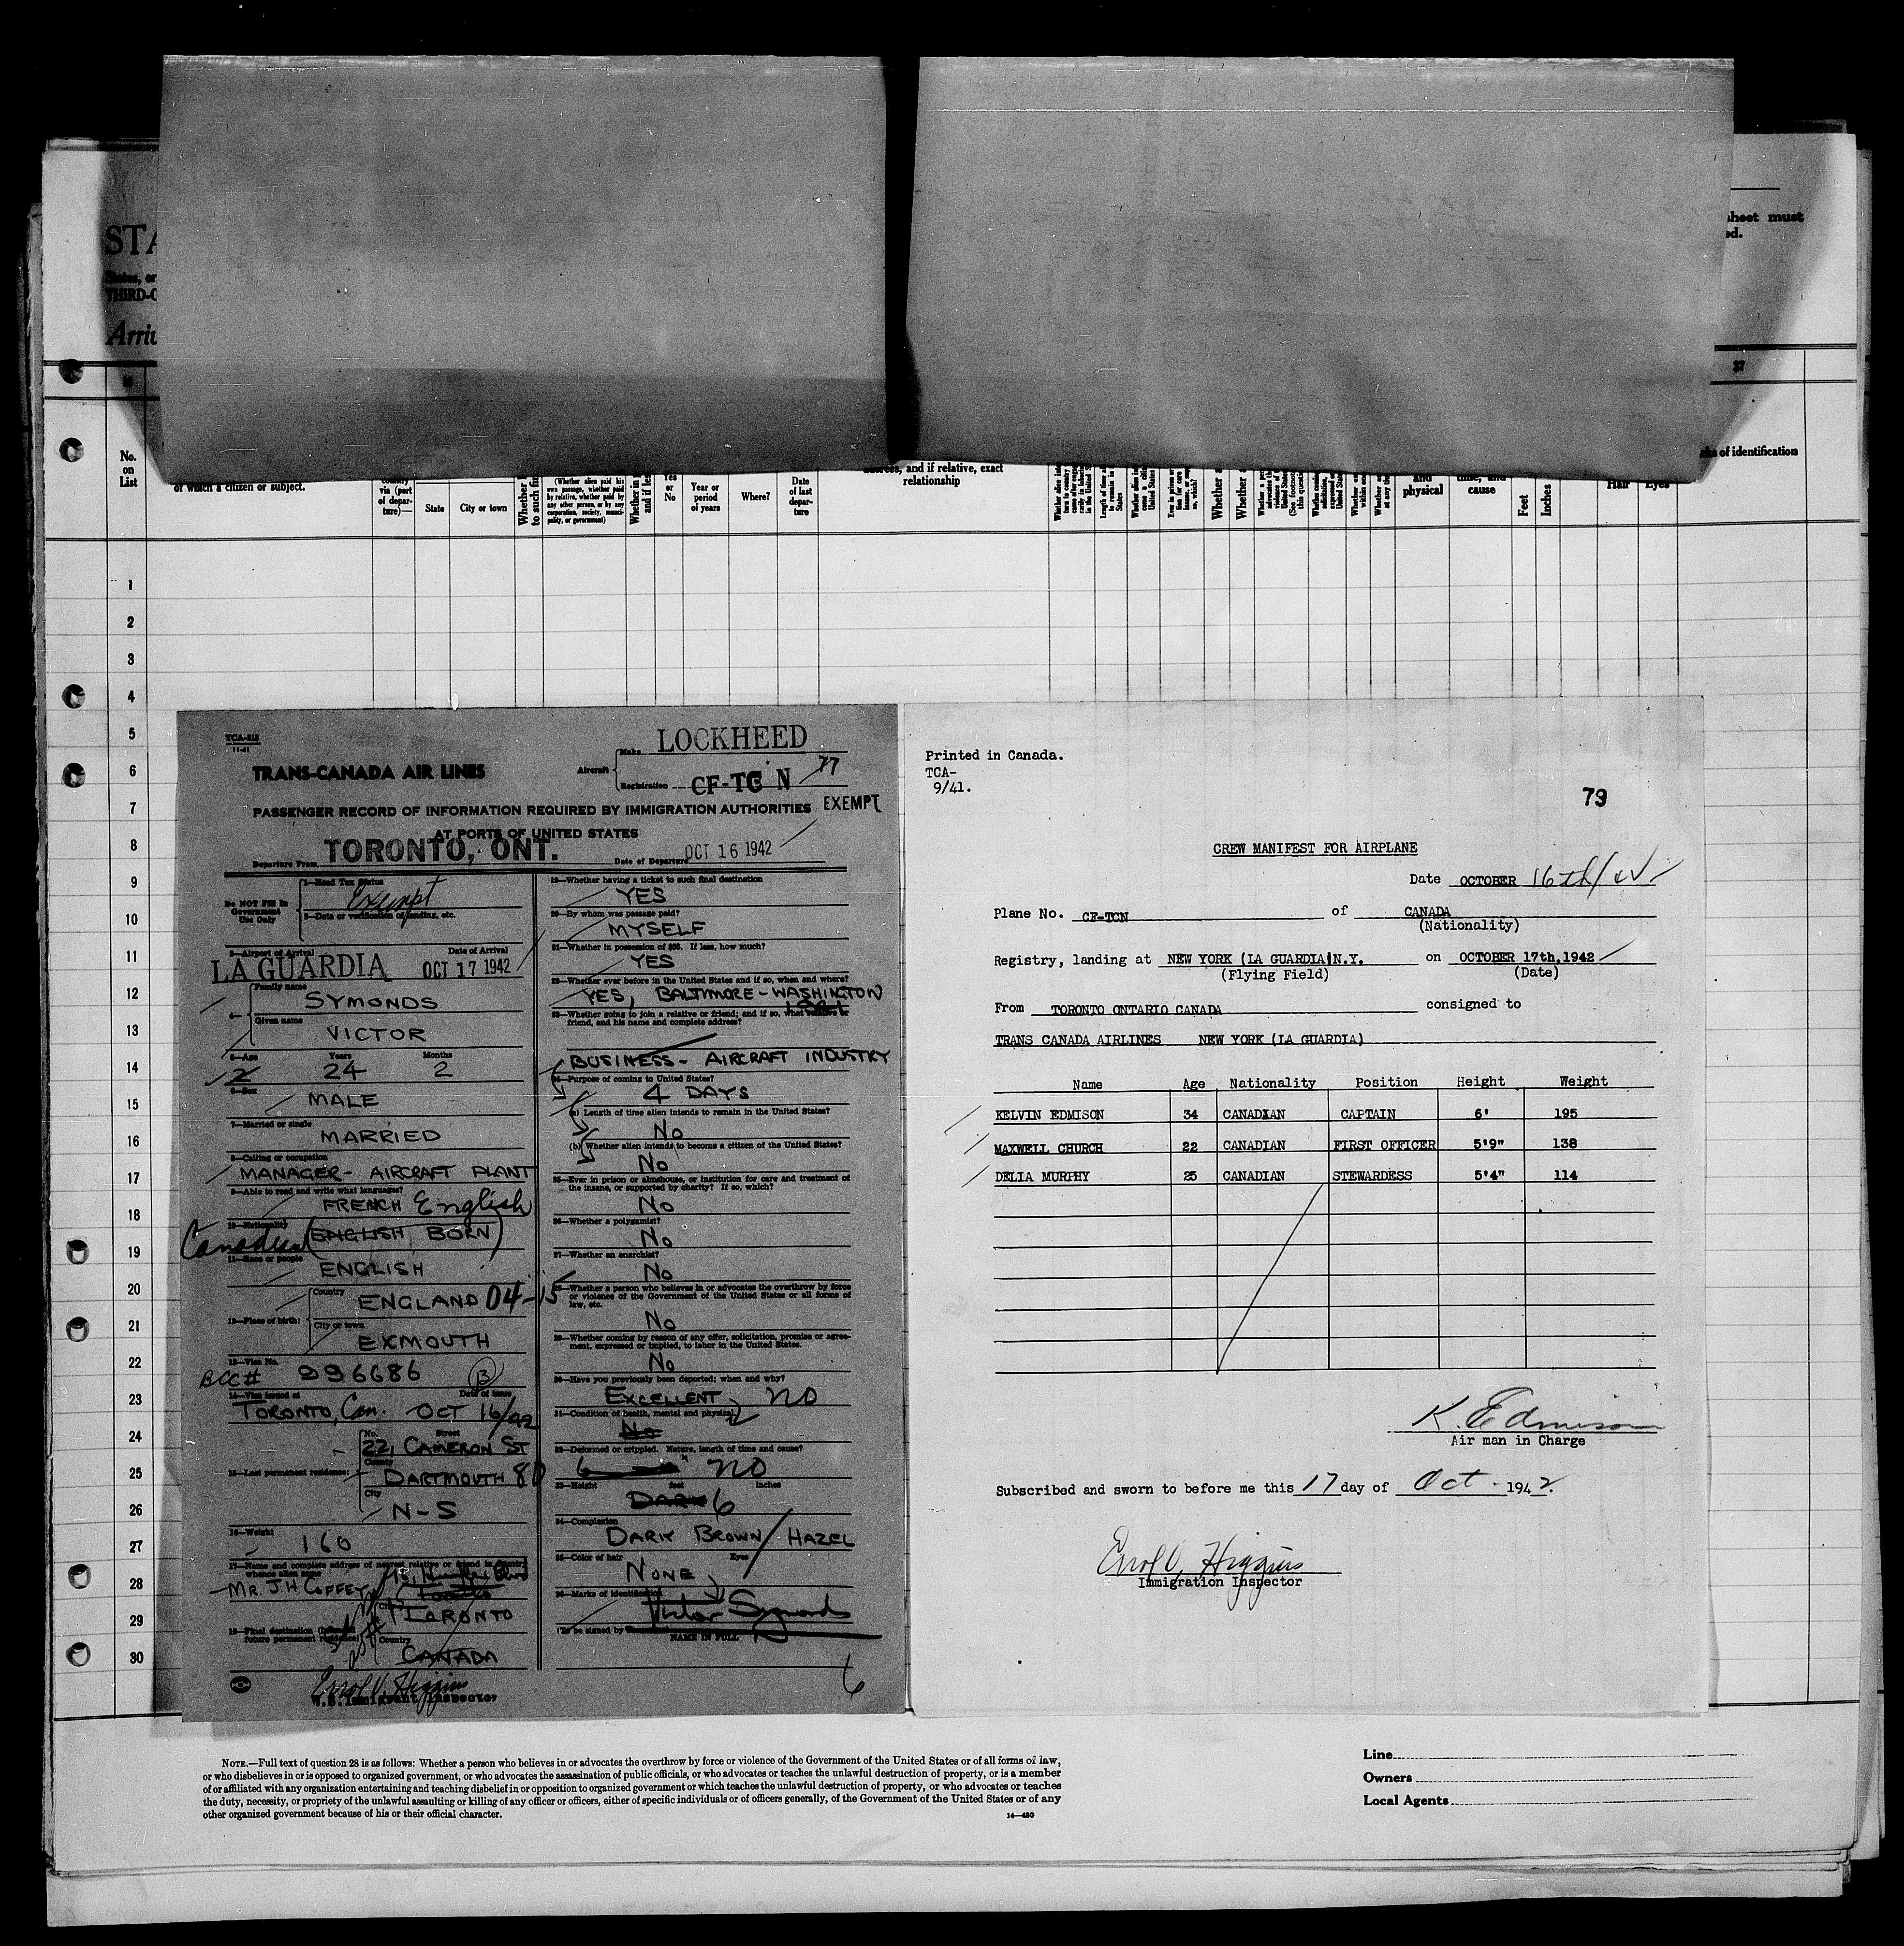 STA
States, or
THIRD-C
Arriv
sheet must
ed.
37
No.
on
List
of which a citizen or subject.
country
via (port
of depar-
ture)—
State
City or town
Whether
to such fi
(Whether alien paid his
own passage, whether paid
by relative, whether paid by
any other person, or by any
corporation, society, munici-
pality, or government)
Yes
or
No
Year or
period
of years
Where?
Date
of last
depar-
ture
address, and if relative, exact
relationship
and
physical
time, and
cause
Feet
Inches
Hair
Eyes
marks of identification
1
2
3
4
5
6
7
8
9
10
11
12
13
14
15
16
17
18
19
20
21
22
23
24
25
26
27
28
29
30
TCA-315
11-41
TRANS-CANADA AIR LINES
Aircraft
Make LOCKHEED
Registration CF-TC N
77
PASSENGER RECORD OF INFORMATION REQUIRED BY IMMIGRATION AUTHORITIES EXEMPT
AT PORTS OF UNITED STATES
Departure From TORONTO, ONT. Date of Departure OCT 16 1942
Do NOT Fill In
Government
Use Only
1—Head Tax Status
Exempt
2—Data or verification of landing, etc.
3—Airport of Arrival Date of Arrival
LA GUARDIA OCT 17 1942
4—
Family name
SYMONDS
Given name
VICTOR
5—Age Years Months
2 24 2
6—Sex
MALE
7—Married or single
MARRIED
8—Calling or occupation
MANAGER - AIRCRAFT PLANT
9—Able to read and write what languages?
FRENCH English
10—Nationality
Canadian (ENGLISH, BORN)
11—Race or people
ENGLISH
12—Place of birth:
Country
ENGLAND 04-15
City or town
EXMOUTH
13—Visa No.
BCC# 296686 B
14—Visa issued at Date of issue
TORONTO, Can. OCT 16/42
15—Last permanent residence:
No. Street
22, CAMERON ST
County
DARTMOUTH 80
City
N-S
16—Weight
160
17—Name and complete address of nearest relative or friend in country
whence alien came
MR. J H COFFEY
TORONTO
18—Final destination (intended
future permanent residence)
Country
CANADA
Errol V. Higgins
U.S. Immigrant Inspector
19—Whether having a ticket to such final destination
YES
20—By whom was passage paid?
MYSELF
21—Whether in possession of $50. If less, how much?
YES
22—Whether ever before in the United States and if so, when and where?
YES, BALTIMORE - WASHINGTON
1941
23—Whether going to join a relative or friend; and if so, what relative or
friend, and his name and complete address?
BUSINESS - AIRCRAFT INDUSTRY
24—Purpose of coming to United States?
4 DAYS
(a) Length of time alien intends to remain in the United States?
No
(b) Whether alien intends to become a citizen of the United States?
No
25—Ever in prison or almshouse, or institution for care and treatment of
the insane, or supported by charity? If so, which?
No
26—Whether a polygamist?
No
27—Whether an anarchist?
No
28—Whether a person who believes in or advocates the overthrow by force
or violence of the Government of the United States or all forms of
law, etc.
No
29—Whether coming by reason of any offer, solicitation, promise or agree-
ment, expressed or implied, to labor in the United States.
No
30—Have you previously been deported; when and why?
EXCELLENT no
31—Condition of health, mental and physical
No
32—Deformed or crippled. Nature, length of time and cause?
6 no
33—Height feet inches
DARK 6
34—Complexion
DARK BROWN / HAZEL
35—Color of hair Eyes
NONE
36—Marks of identification
Victor Symonds
(To be signed by
NAME IN FULL
6
Printed in Canada.
TCA-
9/41.
79
CREW MANIFEST FOR AIRPLANE
Date OCTOBER 16th/42
Plane No. CF-TCN of CANADA
(Nationality)
Registry, landing at NEW YORK (LA GUARDIA)N.Y. on OCTOBER 17th,1942
(Flying Field) (Date)
From TORONTO ONTARIO CANADA consigned to
TRANS CANADA AIRLINES NEW YORK (LA GUARDIA)
Name Age Nationality Position Height Weight
KELVIN EDMISON 34 CANADIAN CAPTAIN 6' 195
MAXWELL CHURCH 22 CANADIAN FIRST OFFICER 5'9" 138
DELIA MURPHY 25 CANADIAN STEWARDESS 5'4" 114
K. Edmison
Air man in Charge
Subscribed and sworn to before me this 17 day of Oct. 1942.
Errol V. Higgins
Immigration Inspector
NOTE.—Full text of question 28 is as follows: Whether a person who believes in or advocates the overthrow by force or violence of the Government of the United States or of all forms of law,
or who disbelieves in or is opposed to organized government, or who advocates the assassination of public officials, or who advocates or teaches the unlawful destruction of property, or is a member
of or affiliated with any organization entertaining and teaching disbelief in or opposition to organized government or which teaches the unlawful destruction of property, or who advocates or teaches
the duty, necessity, or propriety of the unlawful assaulting or killing of any officer or officers, either of specific individuals or of officers generally, of the Government of the United States or of any
other organized government because of his or their official character.
14—430
Line
Owners
Local Agents